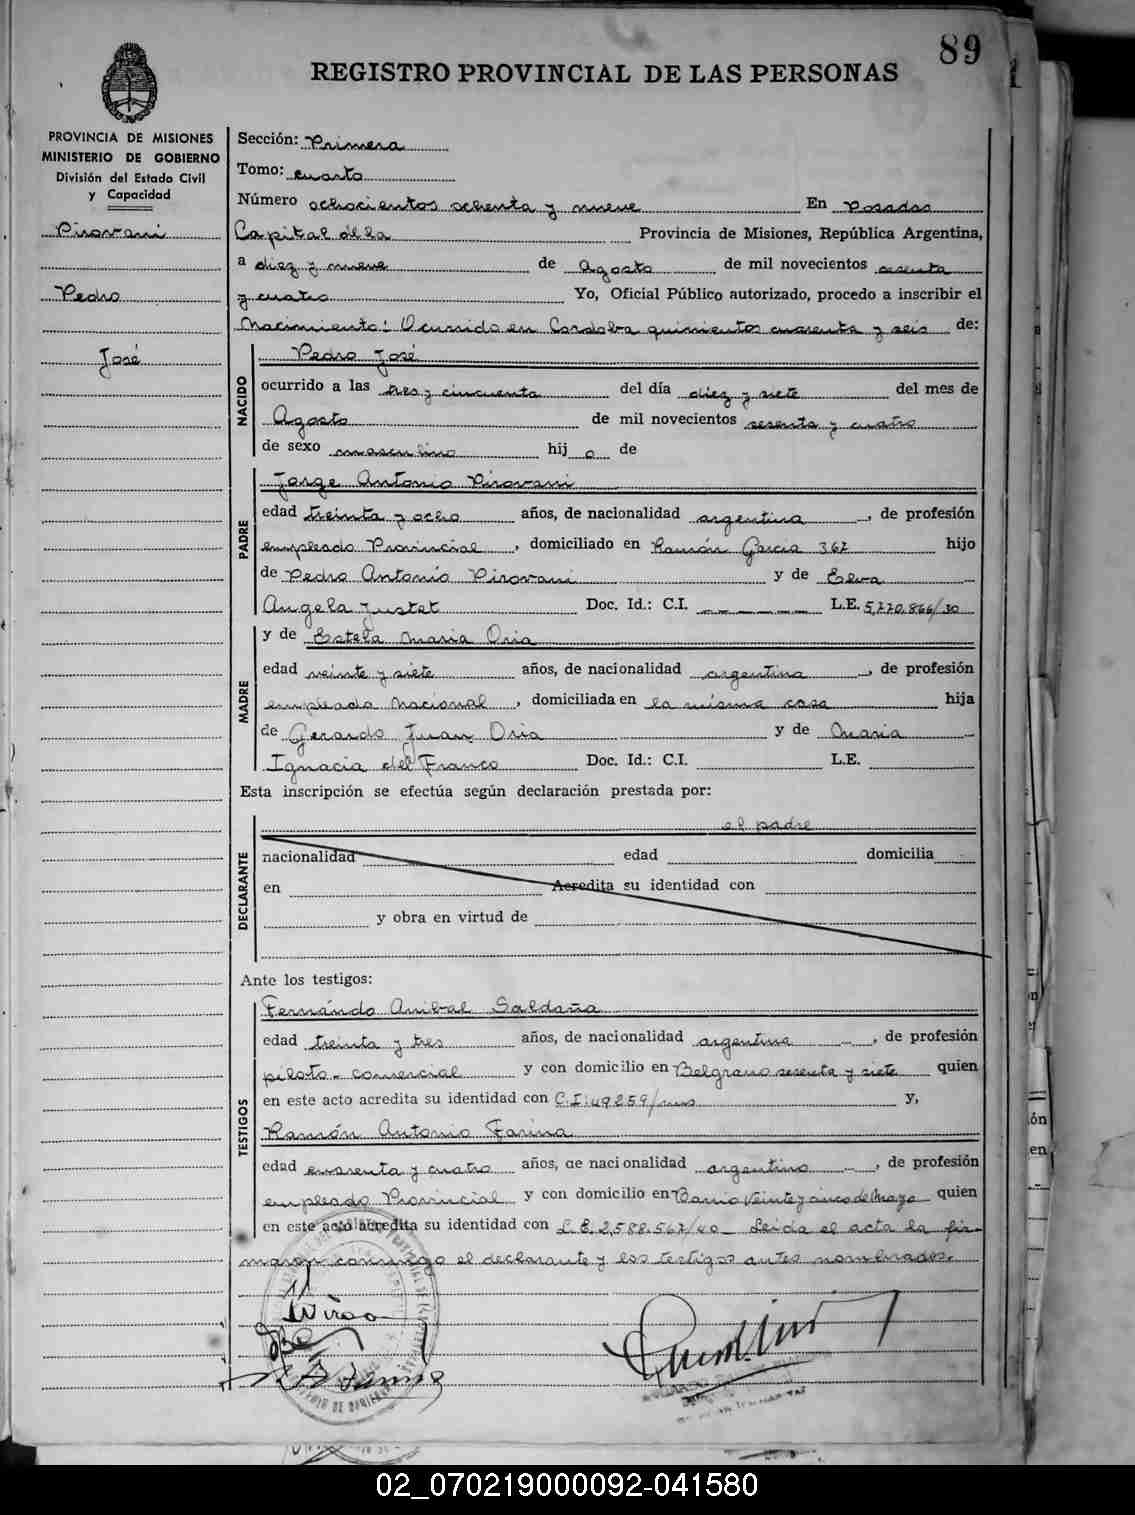 89
REGISTRO PROVINCIAL DE LAS PERSONAS
PROVINCIA DE MISIONES
MINISTERIO DE GOBIERNO
División del Estado Civil
y Capacidad
Pirovani
Pedro
José
Sección: Primera
Tomo: cuarto
Número ochocientos ochenta y nueve En Posadas
Capital de la Provincia de Misiones, República Argentina,
a diez y nueve de Agosto de mil novecientos sesenta
y cuatro Yo, Oficial Público autorizado, procedo a inscribir el
Nacimiento: Ocurrido en Cordoba quinientos cuarenta y seis de:
NACIDO
Pedro José
ocurrido a las tres y cincuenta del día diez y siete del mes de
Agosto de mil novecientos sesenta y cuatro
de sexo masculino hij o de
PADRE
Jorge Antonio Pirovani
edad treinta y ocho años, de nacionalidad argentina, de profesión
empleado Provincial, domiciliado en Ramón Garcia 367 hijo
de Pedro Antonio Pirovani y de Elva
Angela Justet Doc. Id.: C.I. L.E. 5,770,866/30
MADRE
y de Estela Maria Oria
edad veinte y siete años, de nacionalidad argentina, de profesión
empleada Nacional, domiciliada en la misma casa hija
de Gerardo Juan Oria y de Maria
Ignacia del Franco Doc. Id.: C.I. L.E.
Esta inscripción se efectúa según declaración prestada por:
DECLARANTE
el padre
nacionalidad edad domicilia
en Acredita su identidad con
y obra en virtud de
Ante los testigos:
TESTIGOS
Fernándo Anibal Saldaña
edad treinta y tres años, de nacionalidad argentina, de profesión
piloto comercial y con domicilio en Belgrano sesenta y siete quien
en este acto acredita su identidad con C.I: 49259/mns y,
Ramón Antonio Farina
edad cuarenta y cuatro años, de nacionalidad argentino, de profesión
empleado Provincial y con domicilio en Barrio Veinte y cinco de Mayo quien
en este acto acredita su identidad con L.E. 2,588.567/40 Leida el acta la fir-
maron conmigo el declarante y los testigos antes nombrados.
02_070219000092-041580